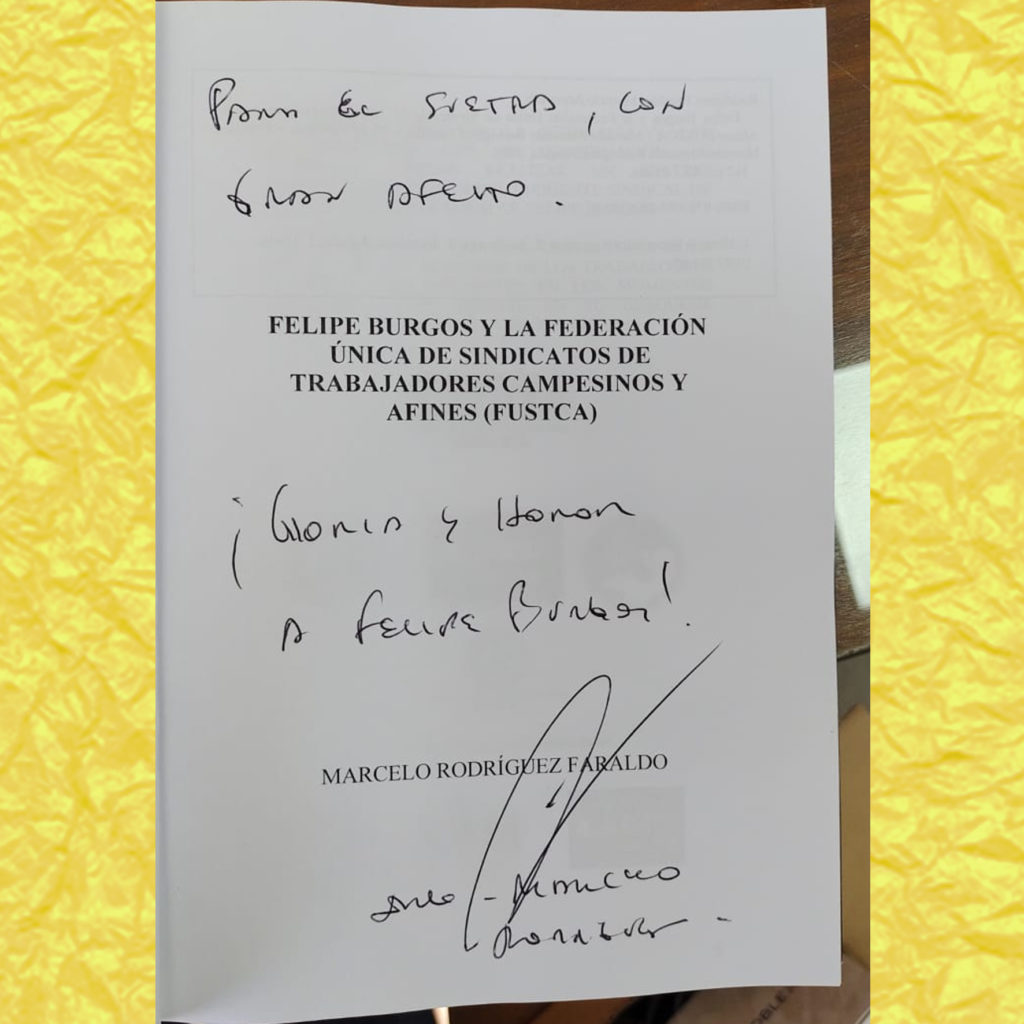 Para el SUETRA, con
gran afecto.
FELIPE BURGOS Y LA FEDERACIÓN
ÚNICA DE SINDICATOS DE
TRABAJADORES CAMPESINOS Y
AFINES (FUSTCA)
¡Gloria y Honor
a Felipe Burgos!
MARCELO RODRÍGUEZ FARALDO
Marcelo
Rodríguez